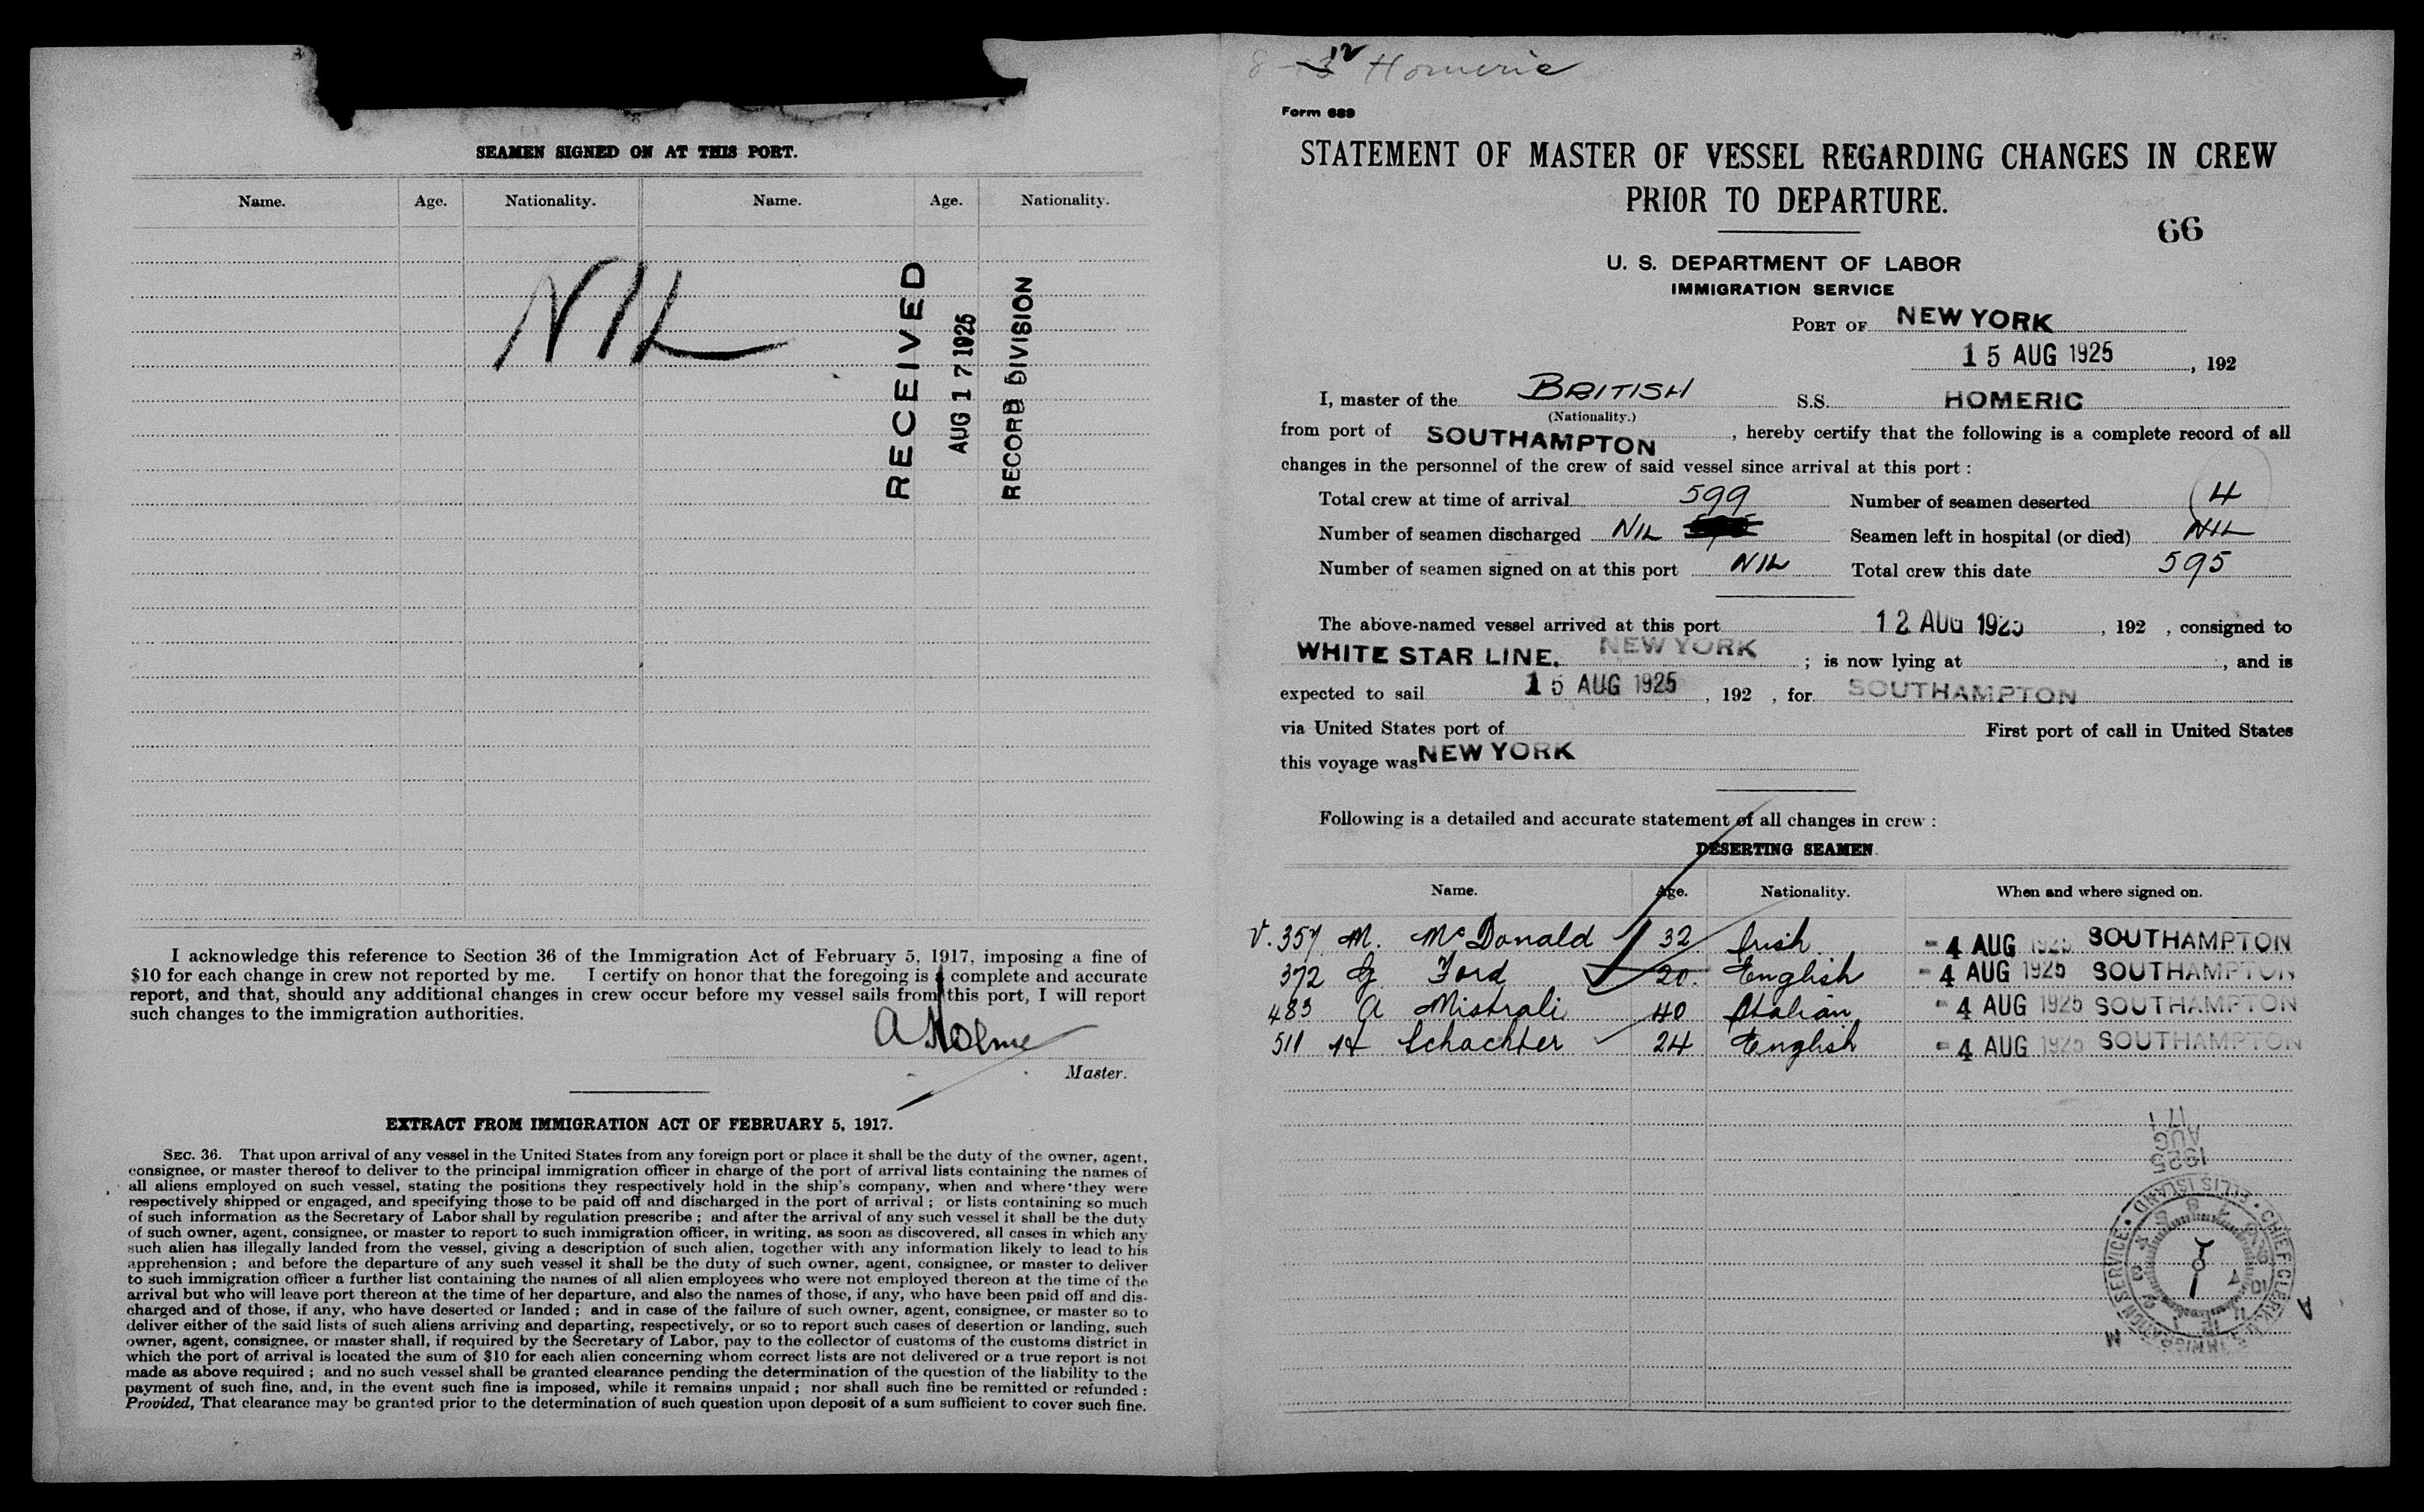 SEAMEN SIGNED ON AT THIS PORT.
Name. Age. Nationality. Name. Age. Nationality.
NIL
RECEIVED
AUG 17 1925
RECORD DIVISION
I acknowledge this reference to Section 36 of the Immigration Act of February 5, 1917, imposing a fine of
$10 for each change in crew not reported by me. I certify on honor that the foregoing is a complete and accurate
report, and that, should any additional changes in crew occur before my vessel sails from this port, I will report
such changes to the immigration authorities.
A Holme
Master.
EXTRACT FROM IMMIGRATION ACT OF FEBRUARY 5, 1917.
SEC. 36. That upon arrival of any vessel in the United States from any foreign port or place it shall be the duty of the owner, agent,
consignee, or master thereof to deliver to the principal immigration officer in charge of the port of arrival lists containing the names of
all aliens employed on such vessel, stating the positions they respectively hold in the ship's company, when and where they were
respectively shipped or engaged, and specifying those to be paid off and discharged in the port of arrival ; or lists containing so much
of such information as the Secretary of Labor shall by regulation prescribe ; and after the arrival of any such vessel it shall be the duty
of such owner, agent, consignee, or master to report to such immigration officer, in writing, as soon as discovered, all cases in which any
such alien has illegally landed from the vessel, giving a description of such alien, together with any information likely to lead to his
apprehension ; and before the departure of any such vessel it shall be the duty of such owner, agent, consignee, or master to deliver
to such immigration officer a further list containing the names of all alien employees who were not employed thereon at the time of the
arrival but who will leave port thereon at the time of her departure, and also the names of those, if any, who have been paid off and dis-
charged and of those, if any, who have deserted or landed ; and in case of the failure of such owner, agent, consignee, or master so to
deliver either of the said lists of such aliens arriving and departing, respectively, or so to report such cases of desertion or landing, such
owner, agent, consignee, or master shall, if required by the Secretary of Labor, pay to the collector of customs of the customs district in
which the port of arrival is located the sum of $10 for each alien concerning whom correct lists are not delivered or a true report is not
made as above required ; and no such vessel shall be granted clearance pending the determination of the question of the liability to the
payment of such fine, and, in the event such fine is imposed, while it remains unpaid ; nor shall such fine be remitted or refunded :
Provided, That clearance may be granted prior to the determination of such question upon deposit of a sum sufficient to cover such fine.
8-12 Homeric
Form 689
STATEMENT OF MASTER OF VESSEL REGARDING CHANGES IN CREW
PRIOR TO DEPARTURE.
66
U. S. DEPARTMENT OF LABOR
IMMIGRATION SERVICE
PORT OF NEW YORK
15 AUG 1925, 192
I, master of the BRITISH S.S. HOMERIC
(Nationality.)
from port of SOUTHAMPTON, hereby certify that the following is a complete record of all
changes in the personnel of the crew of said vessel since arrival at this port :
Total crew at time of arrival 599 Number of seamen deserted 4
Number of seamen discharged NIL Seamen left in hospital (or died) NIL
Number of seamen signed on at this port NIL Total crew this date 595
The above-named vessel arrived at this port 12 AUG 1925, 192 , consigned to
WHITE STAR LINE. NEW YORK ; is now lying at , and is
expected to sail 15 AUG 1925, 192 , for SOUTHAMPTON
via United States port of First port of call in United States
this voyage was NEW YORK
Following is a detailed and accurate statement of all changes in crew :
DESERTING SEAMEN
Name. Age. Nationality. When and where signed on.
V. 357 M. McDonald 32 Irish - 4 AUG 1925 SOUTHAMPTON
372 G Ford 20. English - 4 AUG 1925 SOUTHAMPTON
483 A Mistrali 40 Italian - 4 AUG 1925 SOUTHAMPTON
511 H Schachter 24 English - 4 AUG 1925 SOUTHAMPTON
17 AUG 1925
ELLIS ISLAND · CHIEF CLERK